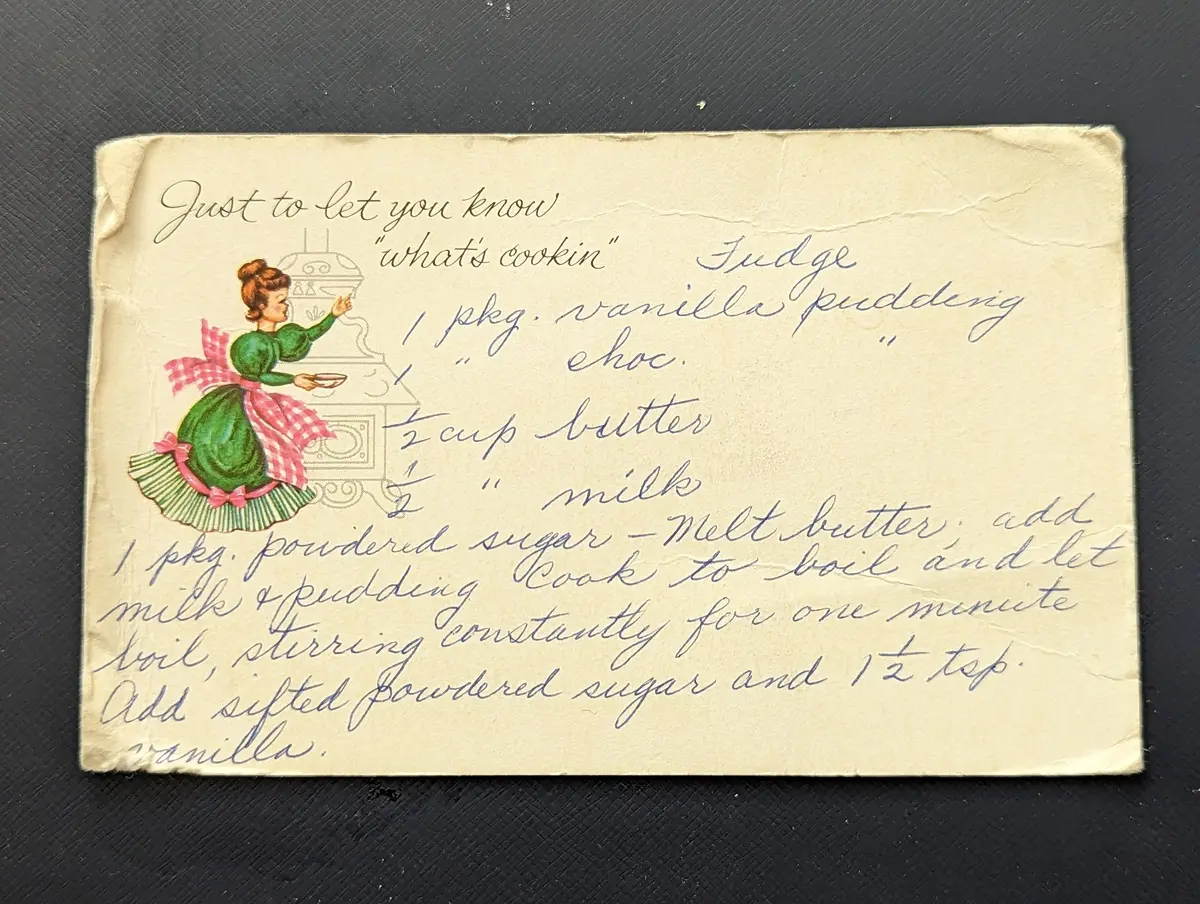 Just to let you know
"what's cookin"
Fudge
1 pkg. vanilla pudding
1 " choc. "
1/2 cup butter
1/2 " milk
1 pkg. powdered sugar – Melt butter, add
milk & pudding Cook to boil and let
boil, stirring constantly for one minute
Add sifted powdered sugar and 1 1/2 tsp.
vanilla.